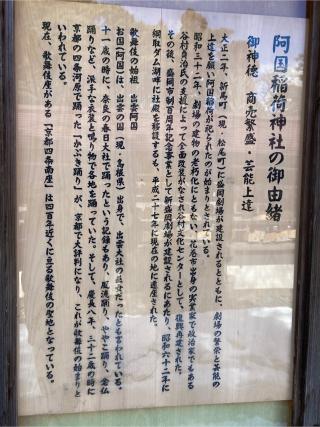 阿国稲荷神社の御由緒
御神徳 商売繁盛・芸能上達
大正二年、新馬町(現・松尾町)に盛岡劇場が建設されるとともに、劇場の繁栄と芸能の
上達を願い阿国稲荷が祀られたのが始まりとされている。
昭和三十二年、劇場の建物の老朽化にともない、花巻市出身の実業家で政治家でもある
谷村貞治氏の支援によって全面改装がなされ谷村文化センターとして、復興再建された。
その後、盛岡市制百周年記念事業として新盛岡劇場が建設されるにあたり、昭和六十二年に
綱取ダム湖畔に社殿を移設するも、平成二十七年に現在の地に遷座された。
歌舞伎の始祖 出雲の阿国
お国(阿国)は、出雲の国(現・島根県)出身で、出雲大社の巫女だったとも言われている。
十一歳の時に、奈良の春日大社で踊ったという記録もあり、風流踊り、ややこ踊り、念仏
踊りなど、派手な衣装と鳴り物で各地を踊っていた。そして、慶長八年、三十二歳の時に
京都の四条河原で踊った「かぶき踊り」が、京都で大評判になり、これが歌舞伎の始まりと
いわれている。
現在、歌舞伎座がある「京都四条南座」は四百年近くに亘る歌舞伎の聖地となっている。